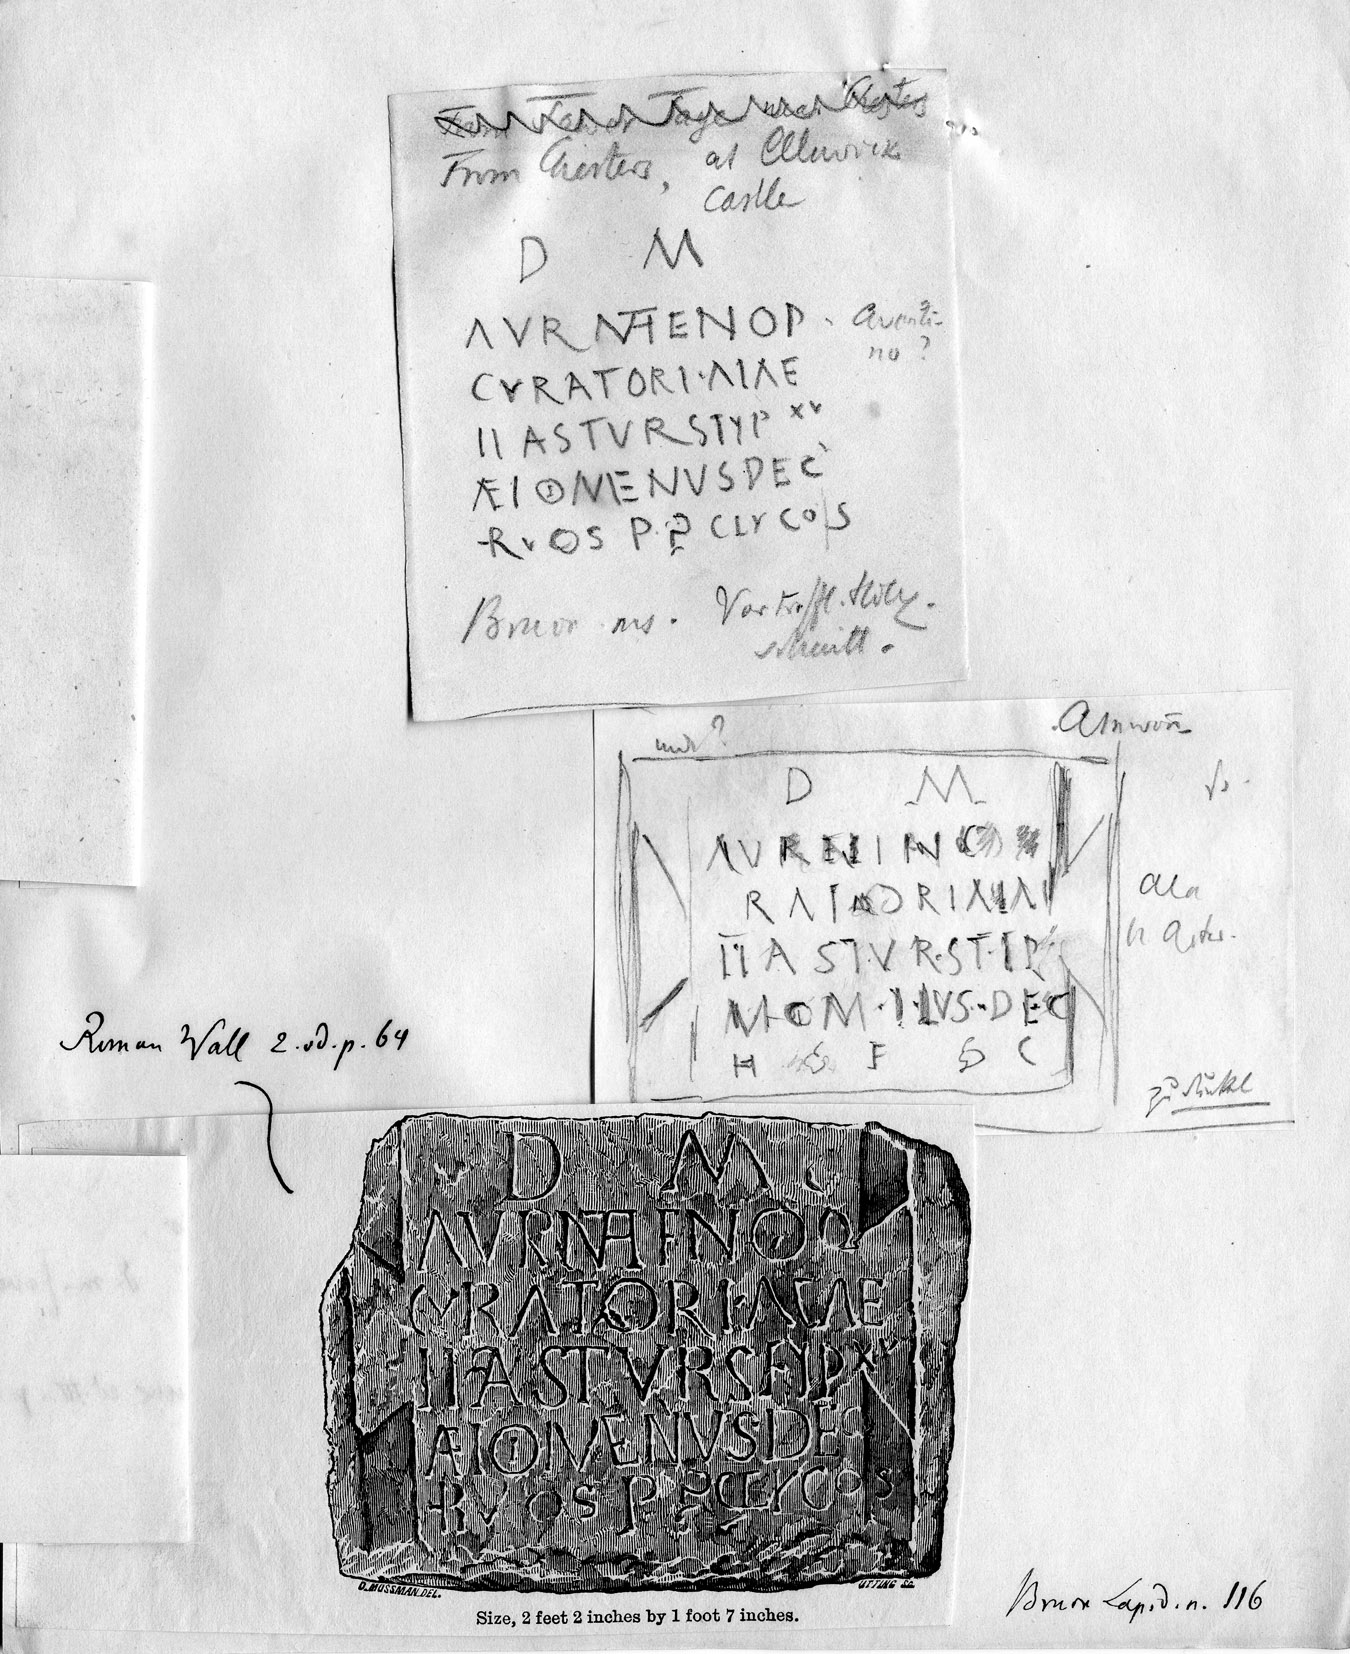 From Chesters, at Allnwick
Castle
D M
AVR NATENOP
CVRATORI·AIAE
II ASTVRSTYP XV
ÆIOMENUS·DEC
RVOS P·P CLYCOS
Aventi-
no?
Bruce ms. Vortreffl. Holz-
schnitt.
Alnwick
und?
D M
AVRELIANO
RATORIAIA
II ASTVR·ST·IP
DEC
H F C
Ala
II Astur.
zu dunkel
Roman Wall 2. ed. p. 64
D M
AVRNAFNOO
CVRATORI·ALAE
IIASTVRSTYPXV
ÆIOMENVS·DEC
RVOS P P CLYCOS
D. MOSSMAN. DEL.
UTTING SC.
Size, 2 feet 2 inches by 1 foot 7 inches.
Bruce Lapid. n. 116